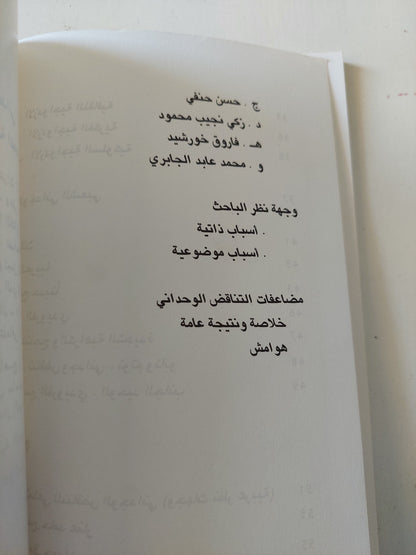 ج . حسن حنفي
د . زكي نجيب محمود
هـ . فاروق خورشيد
و . محمد عابد الجابري
وجهة نظر الباحث
. أسباب ذاتية
. أسباب موضوعية
مضاعفات التناقض الوحداني
خلاصة ونتيجة عامة
هوامش